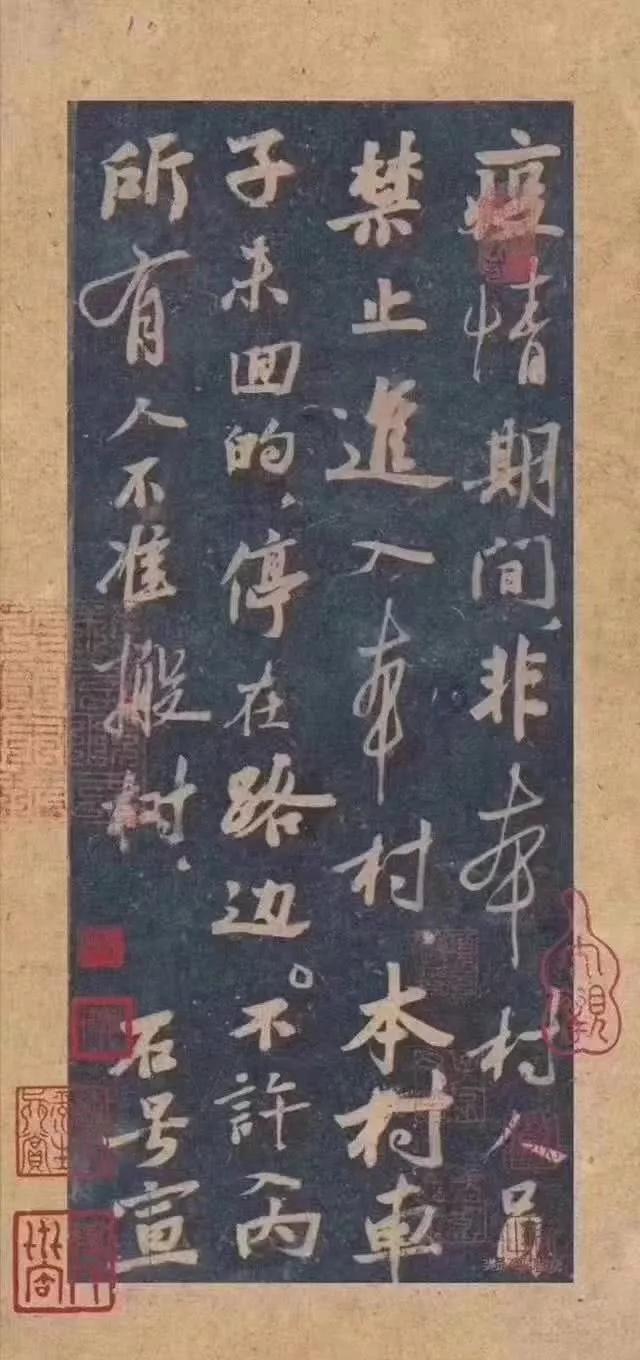 疫情期间,非本村人员
禁止進入本村。本村車
子未回的,停在路边。不許入内
所有人不准搬树.
石号宣
大觀